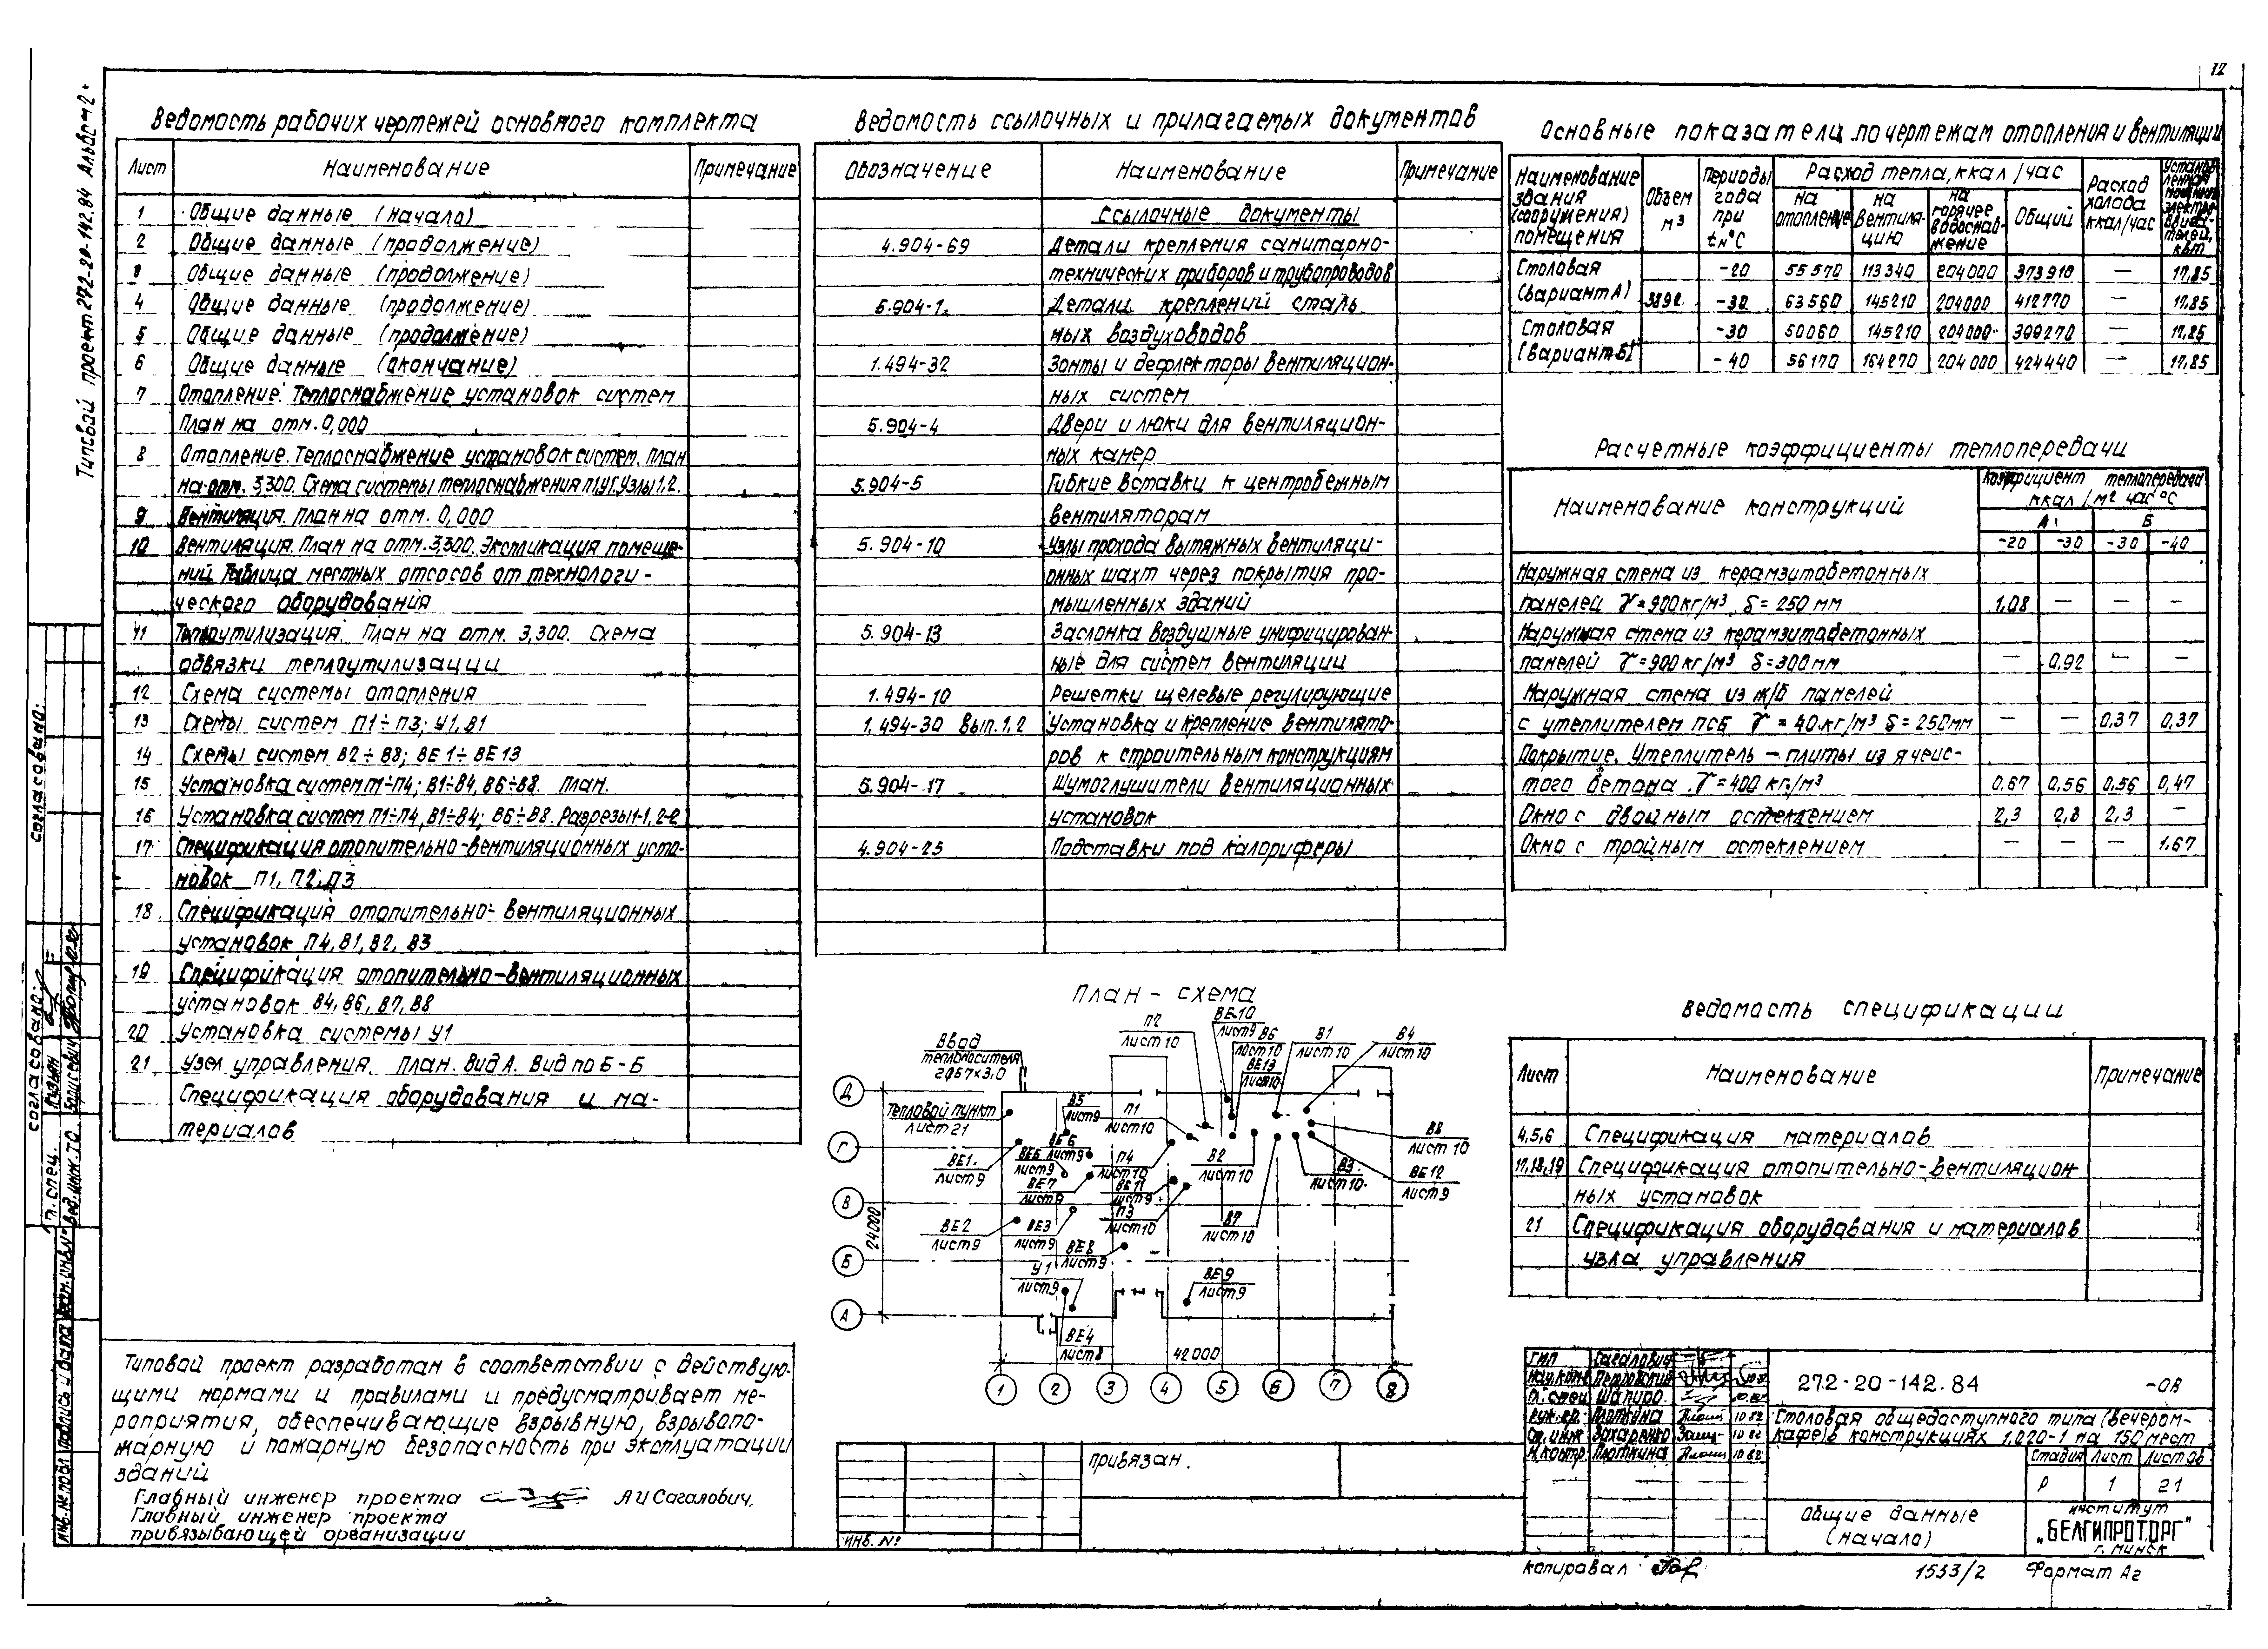 12
Типовой проект 272-20-142.84 Альбом 2
Ведомость рабочих чертежей основного комплекта
Лист Наименование Примечание
1 Общие данные (начало)
2 Общие данные (продолжение)
3 Общие данные (продолжение)
4 Общие данные (продолжение)
5 Общие данные (продолжение)
6 Общие данные (окончание)
7 Отопление. Теплоснабжение установок систем
План на отм. 0,000
8 Отопление. Теплоснабжение установок систем. План
на отм. 3,300. Схема системы теплоснабжения П1, У1. Узлы 1,2.
9 Вентиляция. План на отм. 0,000
10 Вентиляция. План на отм. 3,300. Экспликация помеще-
ний Таблица местных отсосов от технологи-
ческого оборудования
11 Теплоутилизация. План на отм. 3,300. Схема
обвязки теплоутилизации
12 Схема системы отопления
13 Схемы систем П1÷П3; У1, В1
14 Схемы систем В2÷В8; ВЕ1÷ВЕ13
15 Установка систем П1÷П4; В1÷В4, В6÷В8. План.
16 Установка систем П1÷П4, В1÷В4; В6÷В8. Разрезы 1-1, 2-2
17 Спецификация отопительно-вентиляционных уста-
новок П1, П2, П3
18 Спецификация отопительно-вентиляционных
установок П4, В1, В2, В3
19 Спецификация отопительно-вентиляционных
установок В4, В6, В7, В8
20 Установка системы У1
21 Узел управления. План. Вид А. Вид по Б-Б
Спецификация оборудования и ма-
териалов
Ведомость ссылочных и прилагаемых документов
Обозначение Наименование Примечание
Ссылочные документы
4.904-69 Детали крепления санитарно-
технических приборов и трубопроводов
5.904-1. Детали креплений сталь
ных воздуховодов
1.494-32 Зонты и дефлекторы вентиляцион-
ных систем
5.904-4 Двери и люки для вентиляцион-
ных камер
5.904-5 Гибкие вставки к центробежным
вентиляторам
5.904-10 Узлы прохода вытяжных вентиляци-
онных шахт через покрытия про-
мышленных зданий
5.904-13 Заслонка воздушные унифицирован-
ные для систем вентиляции
1.494-10 Решетки щелевые регулирующие
1.494-30 Вып. 1,2 Установка и крепление вентилято-
ров к строительным конструкциям
5.904-17 Шумоглушители вентиляционных
установок
4.904-25 Подставки под калориферы
Основные показатели по чертежам отопления и вентиляции
Наименование здания (сооружения) помещения Объем м³ Периоды года при tн°С Расход тепла, ккал/час Расход холода ккал/час Установленная мощность электродвигателей, квт
на отопление на вентиляцию на горячее водоснабжение Общий
Столовая -20 55570 113340 204000 373910 — 17,85
(вариант А) 3892 -30 63560 145210 204000 412770 — 17,85
Столовая -30 50060 145210 204000 399270 — 17,85
(вариант Б) -40 56170 164270 204000 424440 — 17,85
Расчетные коэффициенты теплопередачи
Наименование конструкций Коэффициент теплопередачи
ккал/м² час °С
А Б
-20 -30 -30 -40
Наружная стена из керамзитобетонных
панелей γ=900 кг/м³ δ=250 мм 1,08 — — —
Наружная стена из керамзитобетонных
панелей γ=900 кг/м³ δ=300 мм — 0,92 — —
Наружная стена из ж/б панелей
с утеплителем ПСБ γ=40 кг/м³ δ=250мм — — 0,37 0,37
Покрытие. Утеплитель – плиты из ячеис-
того бетона γ=400 кг/м³ 0,67 0,56 0,56 0,47
Окно с двойным остеклением 2,3 2,3 2,3 —
Окно с тройным остеклением — — — 1,67
План-схема
Ввод
теплоносителя
2ф57×3,0
Тепловой пункт
Лист 21
П2
Лист 10
ВЕ10
Лист 9
В6
Лист 10
ВЕ13
Лист 10
В1
Лист 10
В4
Лист 10
В5
Лист 9
П1
Лист 10
ВЕ1.
Лист 9
ВЕ6
Лист 9
ВЕ5
Лист 9
ВЕ7
Лист 9
П4
Лист 10
ВЕ11
Лист 9
П3
Лист 10
В2
Лист 10
В3.
Лист 10.
В8
Лист 10
ВЕ12
Лист 9
В7
Лист 10
ВЕ2
Лист 9
ВЕ3
Лист 9
ВЕ8
Лист 9
У1
Лист 9
ВЕ9
Лист 9
ВЕ4
Лист 8
Д
Г
В
Б
А
24000
42000
1 2 3 4 5 6 7 8
Ведомость спецификации
Лист Наименование Примечание
4,5,6 Спецификация материалов
17,18,19 Спецификация отопительно-вентиляцион
ных установок
21 Спецификация оборудования и материалов
узла управления
Типовой проект разработан в соответствии с действую-
щими нормами и правилами и предусматривает ме-
роприятия, обеспечивающие взрывную, взрывопо-
жарную и пожарную безопасность при эксплуатации
зданий
Главный инженер проекта А И Сагалович.
Главный инженер проекта
привязывающей организации
Привязан.
Инв. №
ГИП Сагалович
Нач.ком. Петровский 10.82
Гл. спец Шапиро 10.82
Рук. гр. Плоткина 10 82
Ст. инж Захаренко 10 82
Н. контр. Плоткина 10 82
272-20-142.84 -ОВ
Столовая общедоступного типа (вечером-
кафе) в конструкциях 1.020-1 на 150 мест
Стадия Лист Листов
Р 1 21
Общие данные
(начало)
институт
„БЕЛГИПРОТОРГ"
г. Минск
Копировал 1533/2 Формат А2
Согласовано:
Согласовано:
Гл. спец.
Вед. инж. ТО
Инв. № подл Подпись и дата Взам. инв. №